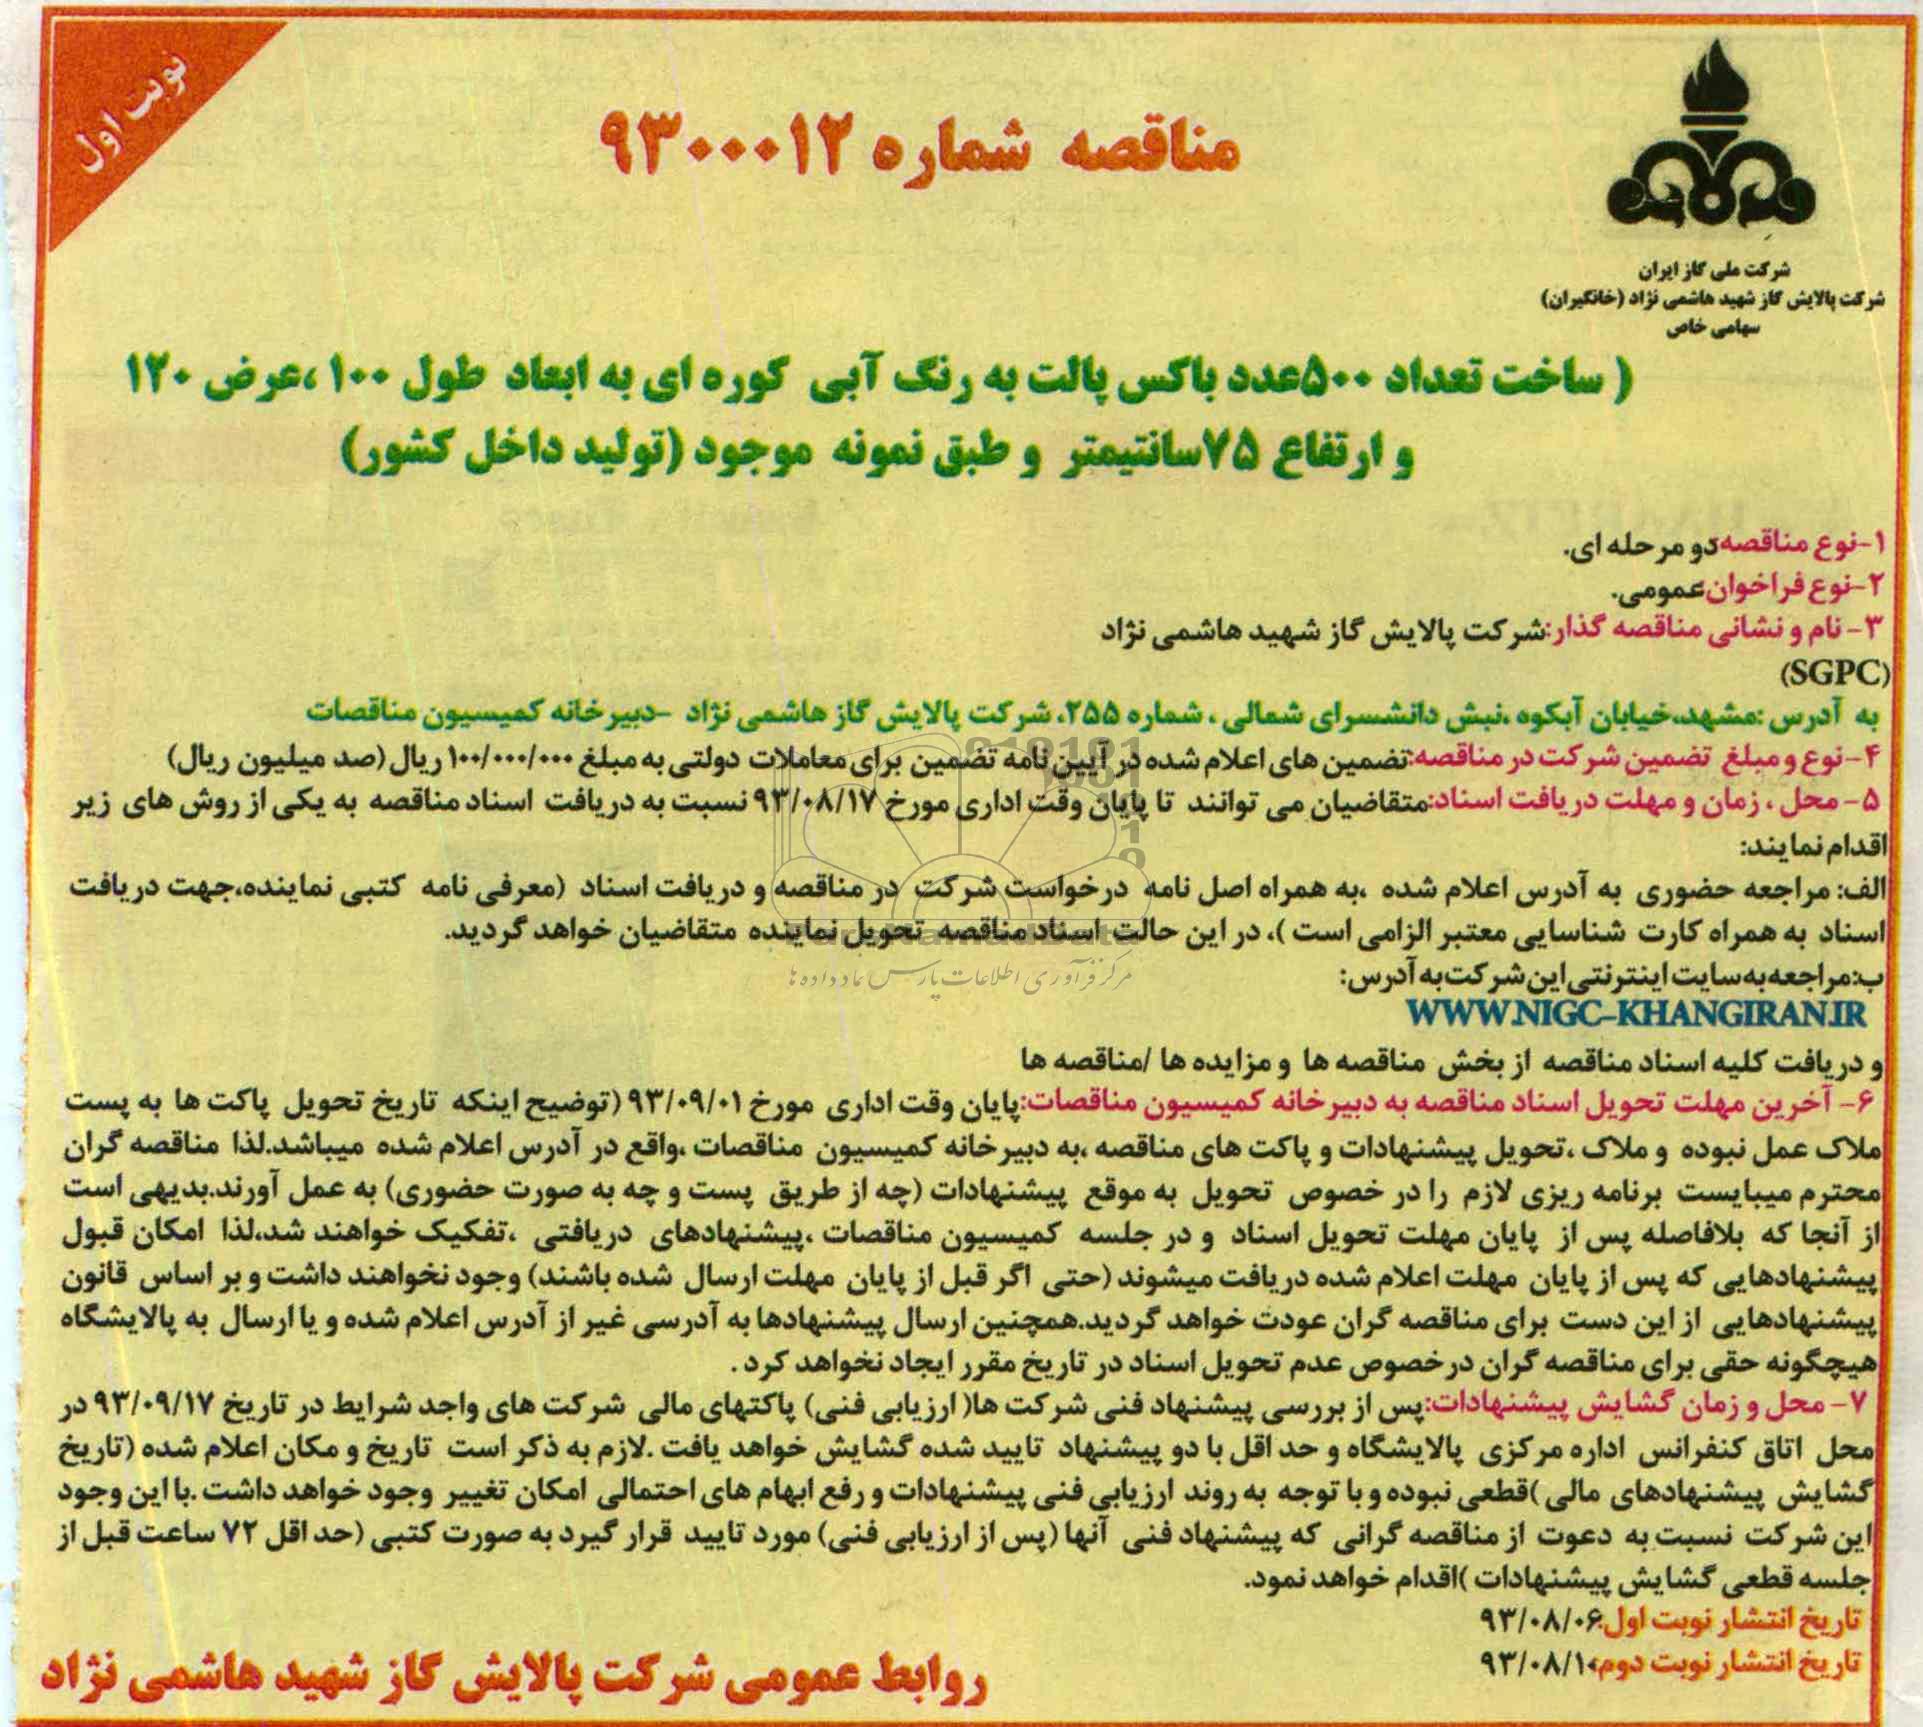 نوبت اول
مناقصه شماره ۹۳۰۰۰۱۲
شرکت ملی گاز ایران
شرکت پالایش گاز شهید هاشمی نژاد (خانگیران)
سهامی خاص
( ساخت تعداد ۵۰۰عدد باکس پالت به رنگ آبی کوره ای به ابعاد طول ۱۰۰ ،عرض ۱۲۰
و ارتفاع ۷۵سانتیمتر و طبق نمونه موجود (تولید داخل کشور)
۱-نوع مناقصه:دو مرحله ای.
۲-نوع فراخوان:عمومی.
۳- نام و نشانی مناقصه گذار:شرکت پالایش گاز شهید هاشمی نژاد
(SGPC)
به آدرس :مشهد،خیابان آبکوه ،نبش دانشسرای شمالی ، شماره ۲۵۵، شرکت پالایش گاز هاشمی نژاد -دبیرخانه کمیسیون مناقصات
۴-نوع و مبلغ تضمین شرکت در مناقصه:تضمین های اعلام شده در آیین نامه تضمین برای معاملات دولتی به مبلغ ۱۰۰/۰۰۰/۰۰۰ ریال (صد میلیون ریال)
۵- محل ، زمان و مهلت دریافت اسناد:متقاضیان می توانند تا پایان وقت اداری مورخ ۹۳/۰۸/۱۷ نسبت به دریافت اسناد مناقصه به یکی از روش های زیر
اقدام نمایند:
الف: مراجعه حضوری به آدرس اعلام شده ،به همراه اصل نامه درخواست شرکت در مناقصه و دریافت اسناد (معرفی نامه کتبی نماینده،جهت دریافت
اسناد به همراه کارت شناسایی معتبر الزامی است )، در این حالت اسناد مناقصه تحویل نماینده متقاضیان خواهد گردید.
مرکز فرآوری اطلاعات پارس نماد داده ها
ب:مراجعه به سایت اینترنتی این شرکت به آدرس:
WWW.NIGC-KHANGIRAN.IR
و دریافت کلیه اسناد مناقصه از بخش مناقصه ها و مزایده ها /مناقصه ها
۶- آخرین مهلت تحویل اسناد مناقصه به دبیرخانه کمیسیون مناقصات:پایان وقت اداری مورخ ۹۳/۰۹/۰۱ (توضیح اینکه تاریخ تحویل پاکت ها به پست
ملاک عمل نبوده و ملاک ،تحویل پیشنهادات و پاکت های مناقصه ،به دبیرخانه کمیسیون مناقصات ،واقع در آدرس اعلام شده میباشد.لذا مناقصه گران
محترم میبایست برنامه ریزی لازم را در خصوص تحویل به موقع پیشنهادات (چه از طریق پست و چه به صورت حضوری) به عمل آورند.بدیهی است
از آنجا که بلافاصله پس از پایان مهلت تحویل اسناد و در جلسه کمیسیون مناقصات ،پیشنهادهای دریافتی ،تفکیک خواهند شد،لذا امکان قبول
پیشنهادهایی که پس از پایان مهلت اعلام شده دریافت میشوند (حتی اگر قبل از پایان مهلت ارسال شده باشند) وجود نخواهند داشت و بر اساس قانون
پیشنهادهایی از این دست برای مناقصه گران عودت خواهد گردید.همچنین ارسال پیشنهادها به آدرسی غیر از آدرس اعلام شده و یا ارسال به پالایشگاه
هیچگونه حقی برای مناقصه گران درخصوص عدم تحویل اسناد در تاریخ مقرر ایجاد نخواهد کرد .
۷- محل و زمان گشایش پیشنهادات:پس از بررسی پیشنهاد فنی شرکت ها( ارزیابی فنی) پاکتهای مالی شرکت های واجد شرایط در تاریخ ۹۳/۰۹/۱۷ در
محل اتاق کنفرانس اداره مرکزی پالایشگاه و حداقل با دو پیشنهاد تایید شده گشایش خواهد یافت .لازم به ذکر است تاریخ و مکان اعلام شده (تاریخ
گشایش پیشنهادهای مالی )قطعی نبوده و با توجه به روند ارزیابی فنی پیشنهادات و رفع ابهام های احتمالی امکان تغییر وجود خواهد داشت .با این وجود
این شرکت نسبت به دعوت از مناقصه گرانی که پیشنهاد فنی آنها (پس از ارزیابی فنی) مورد تایید قرار گیرد به صورت کتبی (حداقل ۷۲ ساعت قبل از
جلسه قطعی گشایش پیشنهادات )اقدام خواهد نمود.
تاریخ انتشار نوبت اول:۹۳/۰۸/۰۶
تاریخ انتشار نوبت دوم:۹۳/۰۸/۱۰
روابط عمومی شرکت پالایش گاز شهید هاشمی نژاد